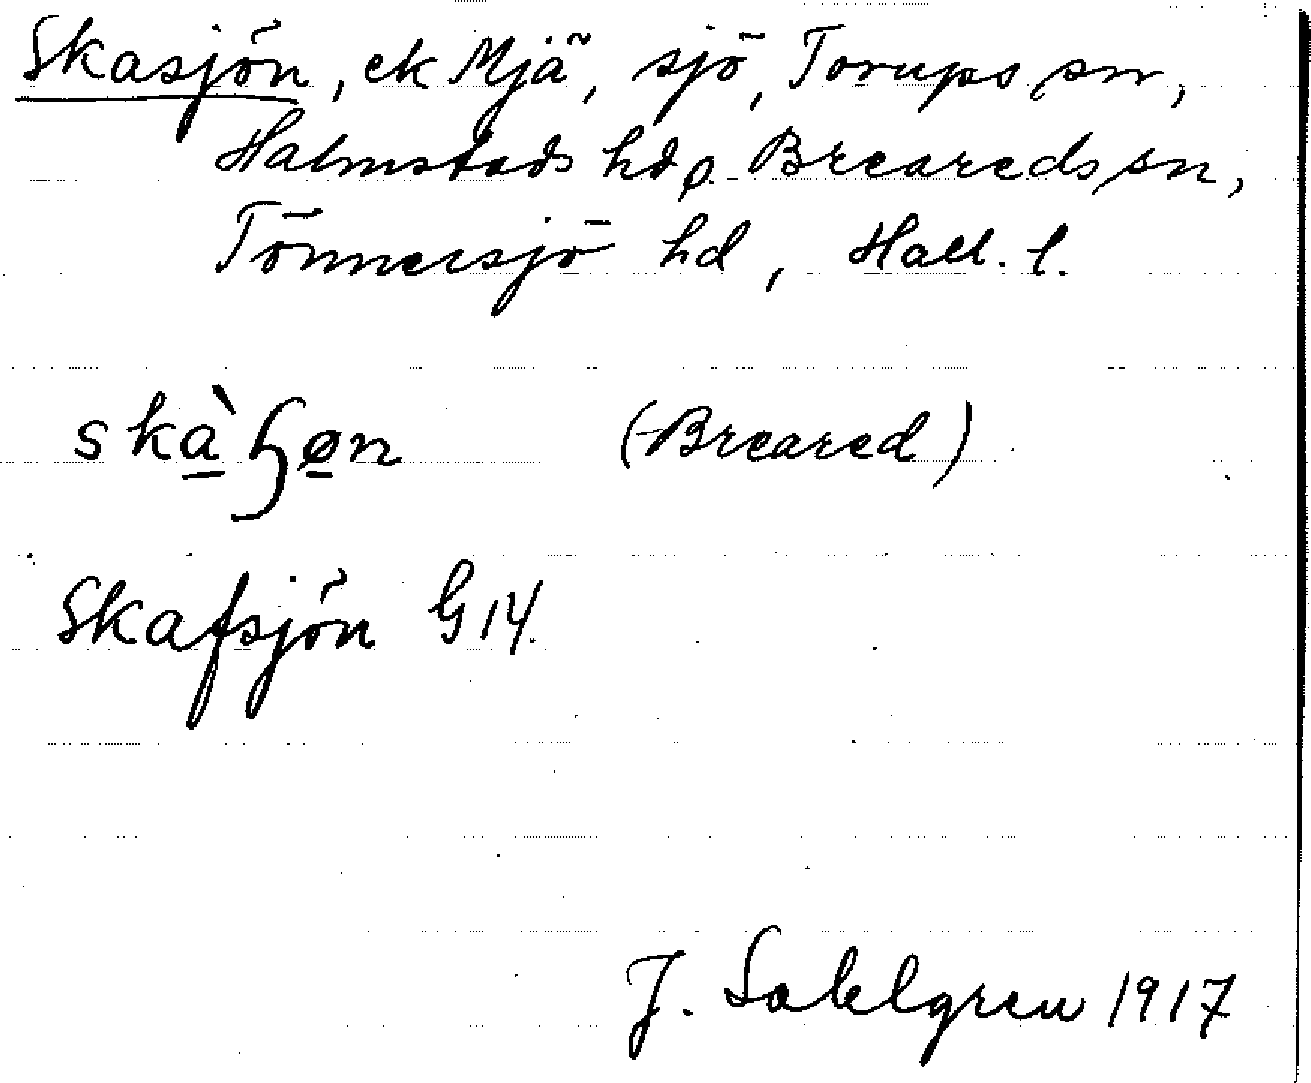 Skasjön, ek Mjä, sjö, Torups sn,
Halmstads hd o. Breareds sn,
Tönnersjö hd, Hall. l.
skàɧøn (Breared)
Skafsjön G 14.
J. Sahlgren 1917